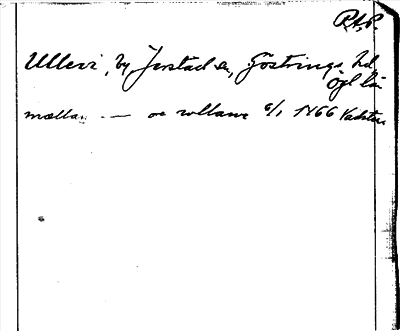 R.A.P.
Ullevi, by Järstad sn, Göstrings hd
Ögl län
mællan — oc wllawe 6/1 1466 Vadstena